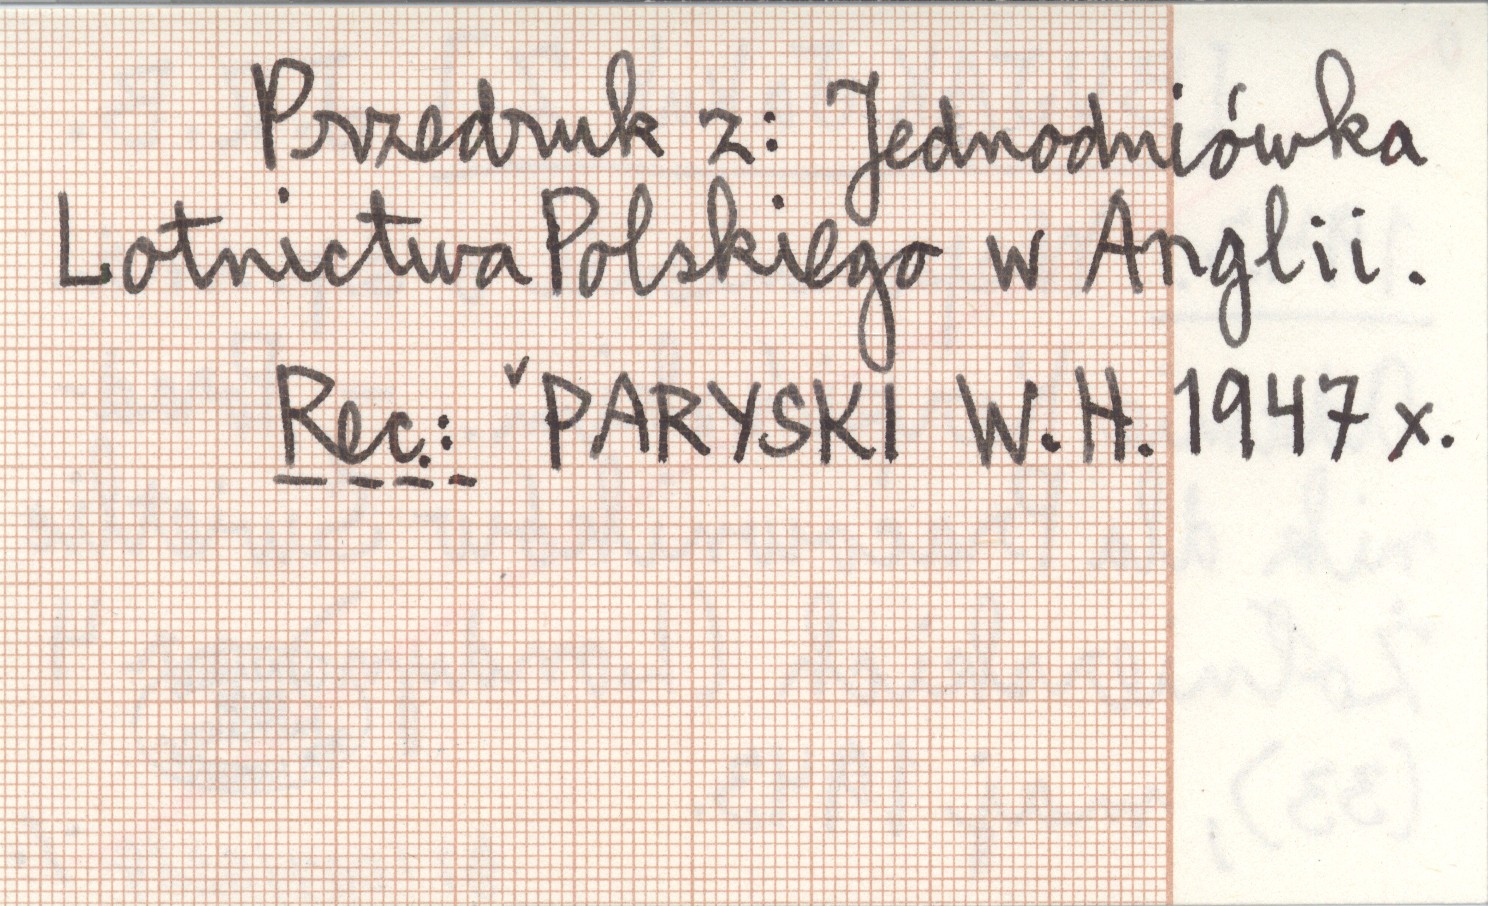 Przedruk z: Jednodniówka
Lotnictwa Polskiego w Anglii.
Rec.: ˇPARYSKI W.H. 1947 x.